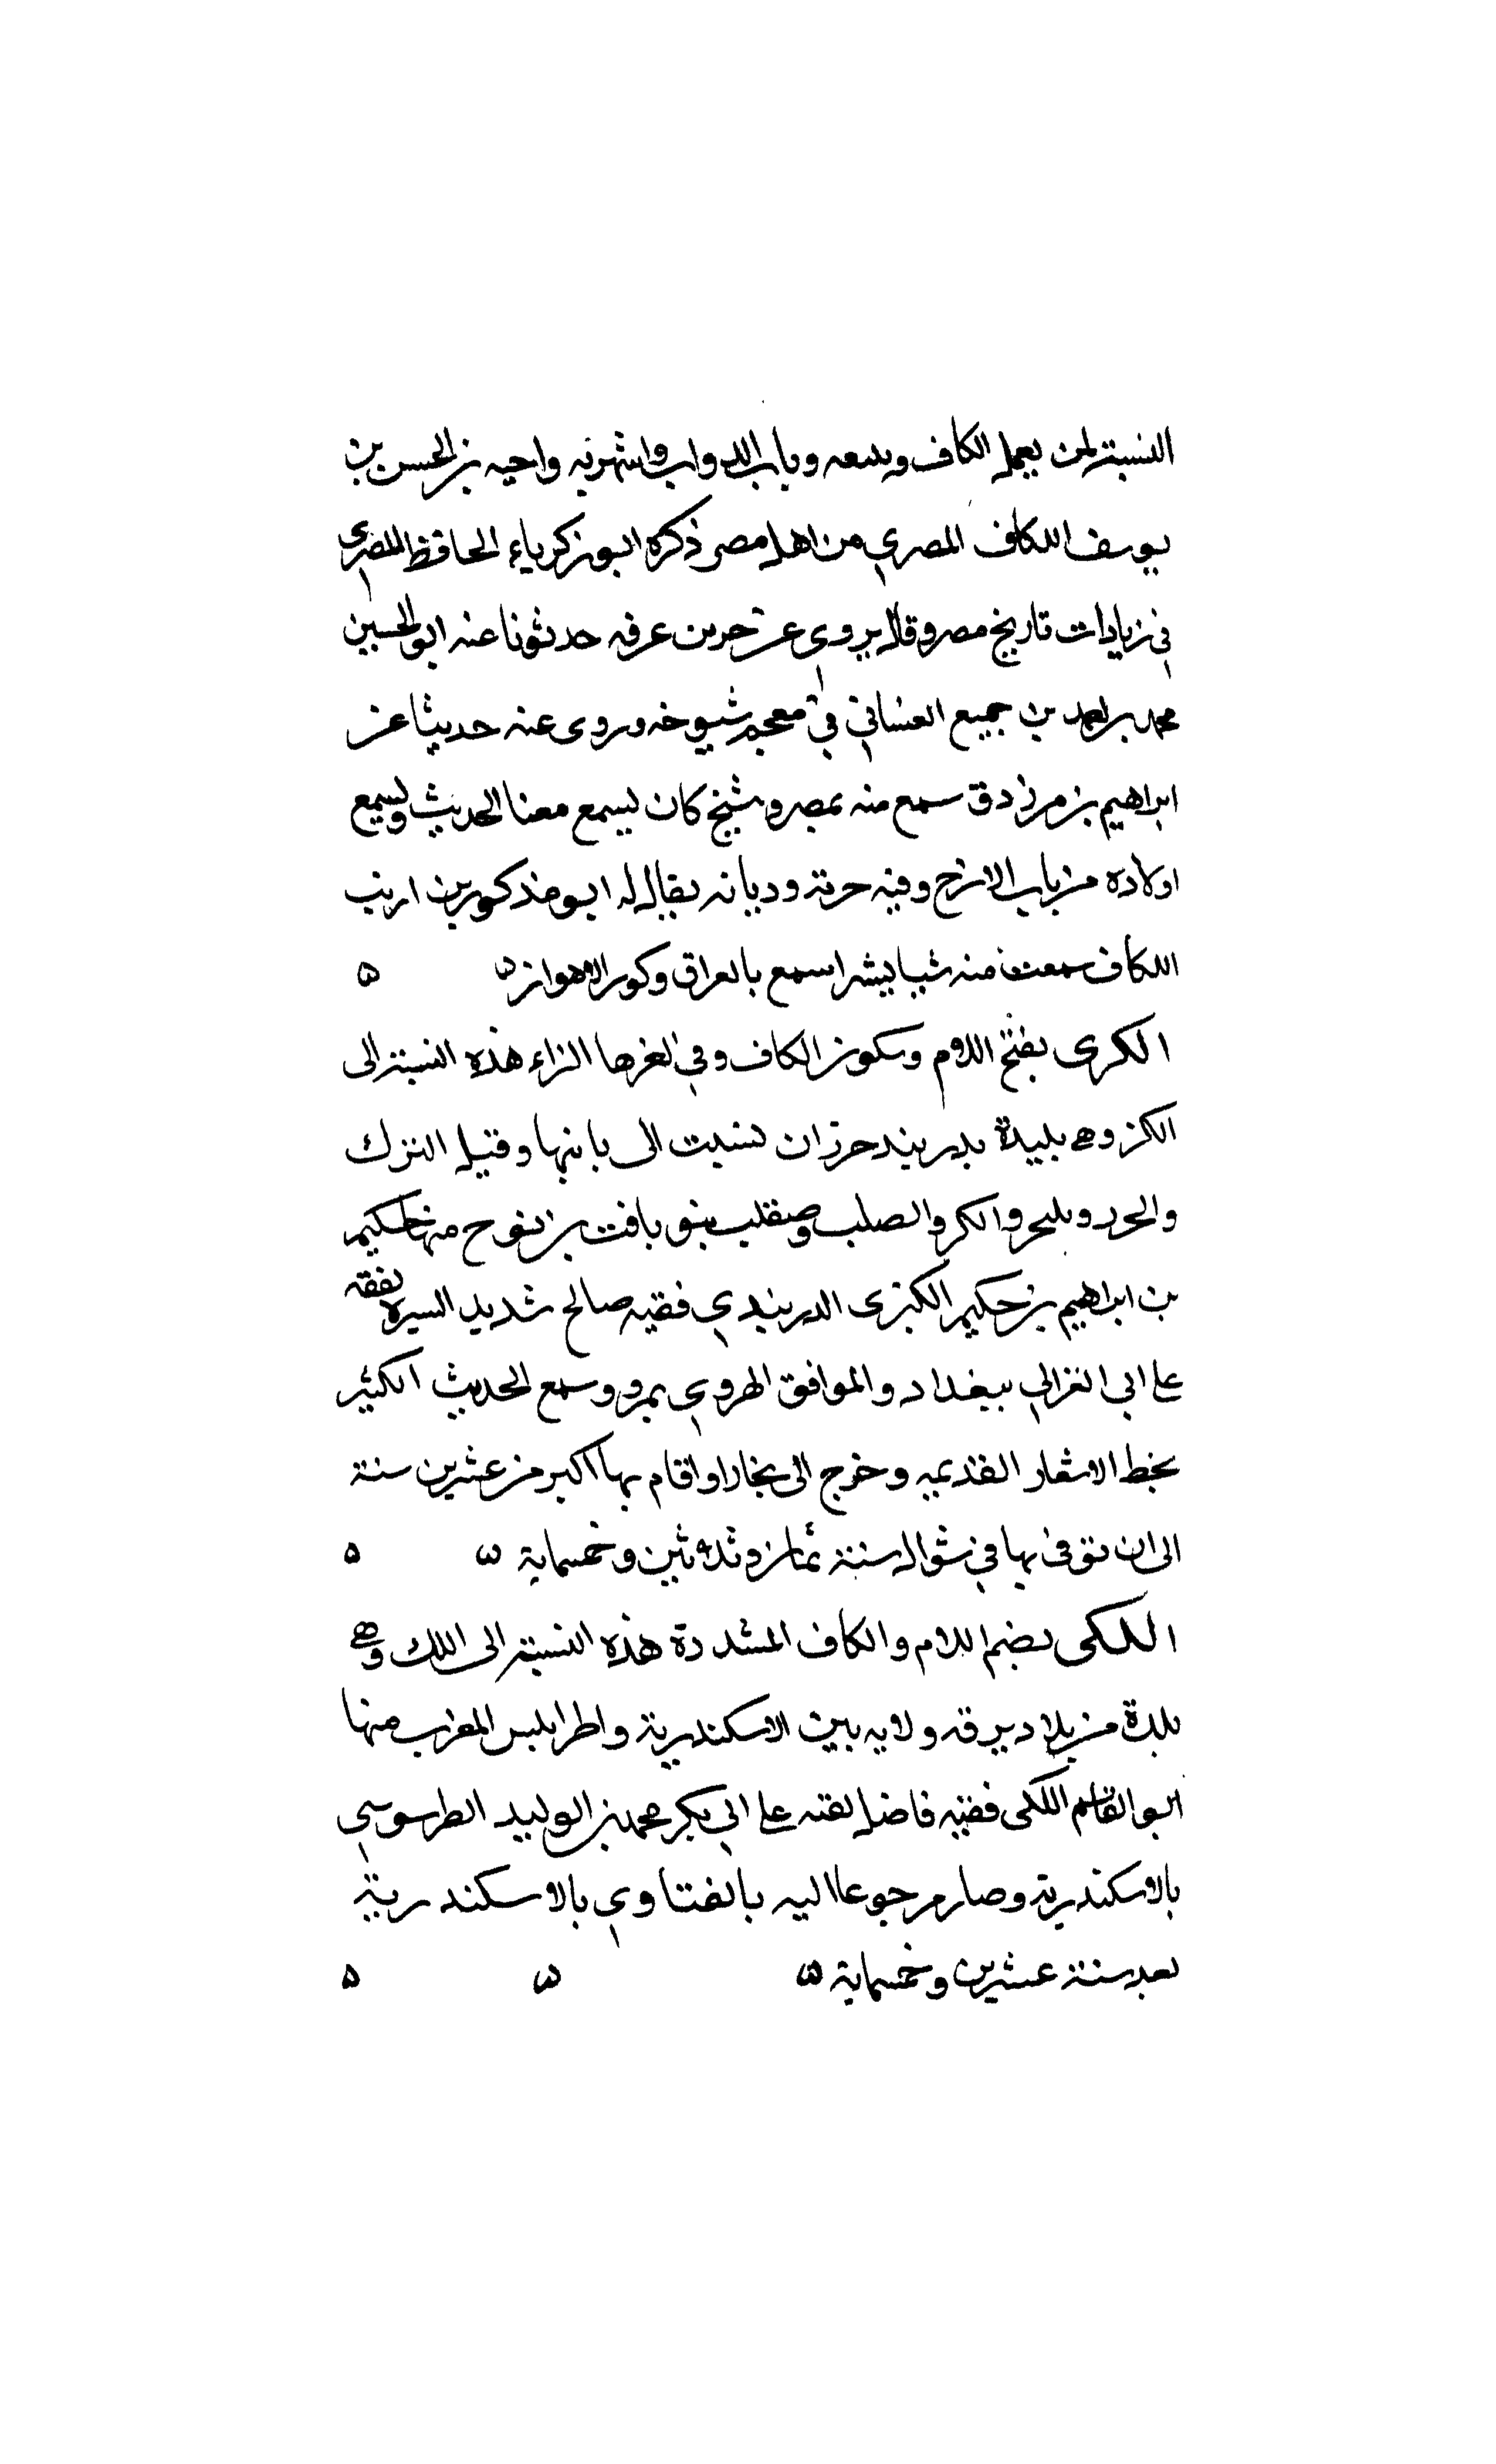 النسبة لمن يعمل الكاف ويبيعه وباب الدواب واشتهر به واحيه بن الحسن بن
يوسف اللكاف المصري من اهل مصر ذكره ابو زكرياء الحافظ المصري
في زيادات تاريخ مصر وقال يروى عن حرمن عرفه حدثونا عنه ابو الحسين
محمد بن احمد بن جميع الغساني في معجم شيوخه وروى عنه حديثا عن
ابراهيم بن مرزدق سمع منه بمصر وشيخ كان يسمع معنا الحديث ويسمع
اولاده من باب الازج وفيه حرمة وديانه يقال له ابو مذكور بن ارنب
اللكاف سمعت منه شيا يسيرا سمع بالعراق وكور الاهواز
الكرى بفتح اللام وسكون الكاف وفي اخرها الزاء هذه النسبة الى
الكز وهى بليدة بدربند خزان نسبت الى بانيها وقيل الترك
والخزر وبلنجر والكز والصلب وصقلب بنو يافت بن نوح منها حكيم
بن ابراهيم بن حكيم الكزى الدربندي فقيه صالح شديد السيرة تفقه
على ابي الغزالي ببغداد والموافق الهروي بمرو وسمع الحديث الكثير
بخط الاشعار القديمه وخرج الى بخارا واقام بها اكبر من عشرين سنة
الى ان توفى بها في شوال سنة ثمان وثلاثين وخمسماية
اللكى بضم اللام والكاف المشددة هذه النسبة الى اللك وهى
بلدة من بلاد برقه ولايه بين الاسكندرية واطرابلس المغرب منها
ابو القاسم اللكى فقيه فاضل تفقه على ابي بكر محمد بن الوليد الطرسوسي
بالاسكندرية وصار مرجوعا اليه بالفتاوي بالاسكندرية
بعد سنة عشرين وخمسماية